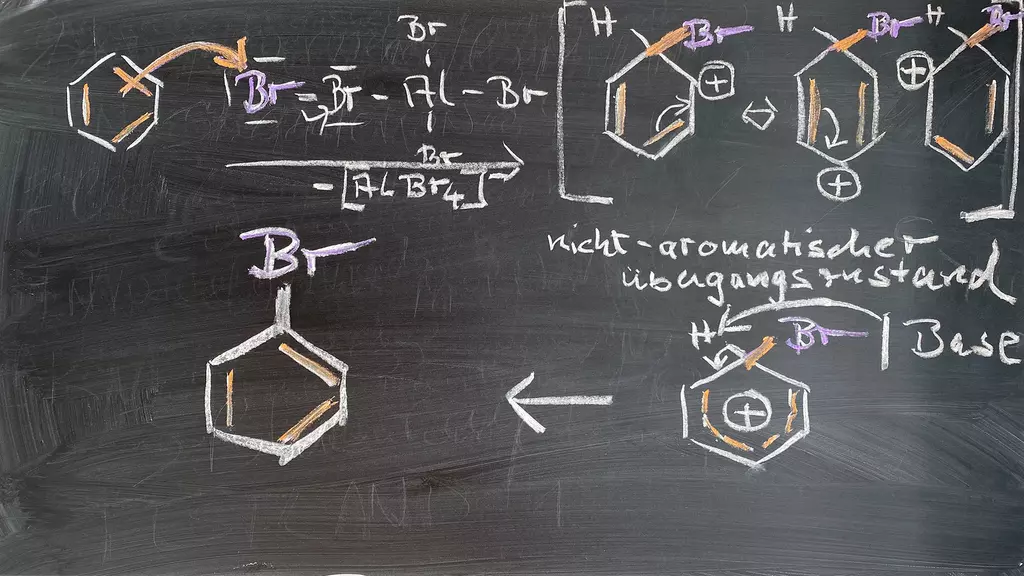 Br
Br - Br - Al - Br
Br
- [AlBr4]-
H Br ⊕ ⇔ H Br ⊕ H Br ⊕
nicht-aromatischer
übergangszustand
Br
H Br | Base
⊕